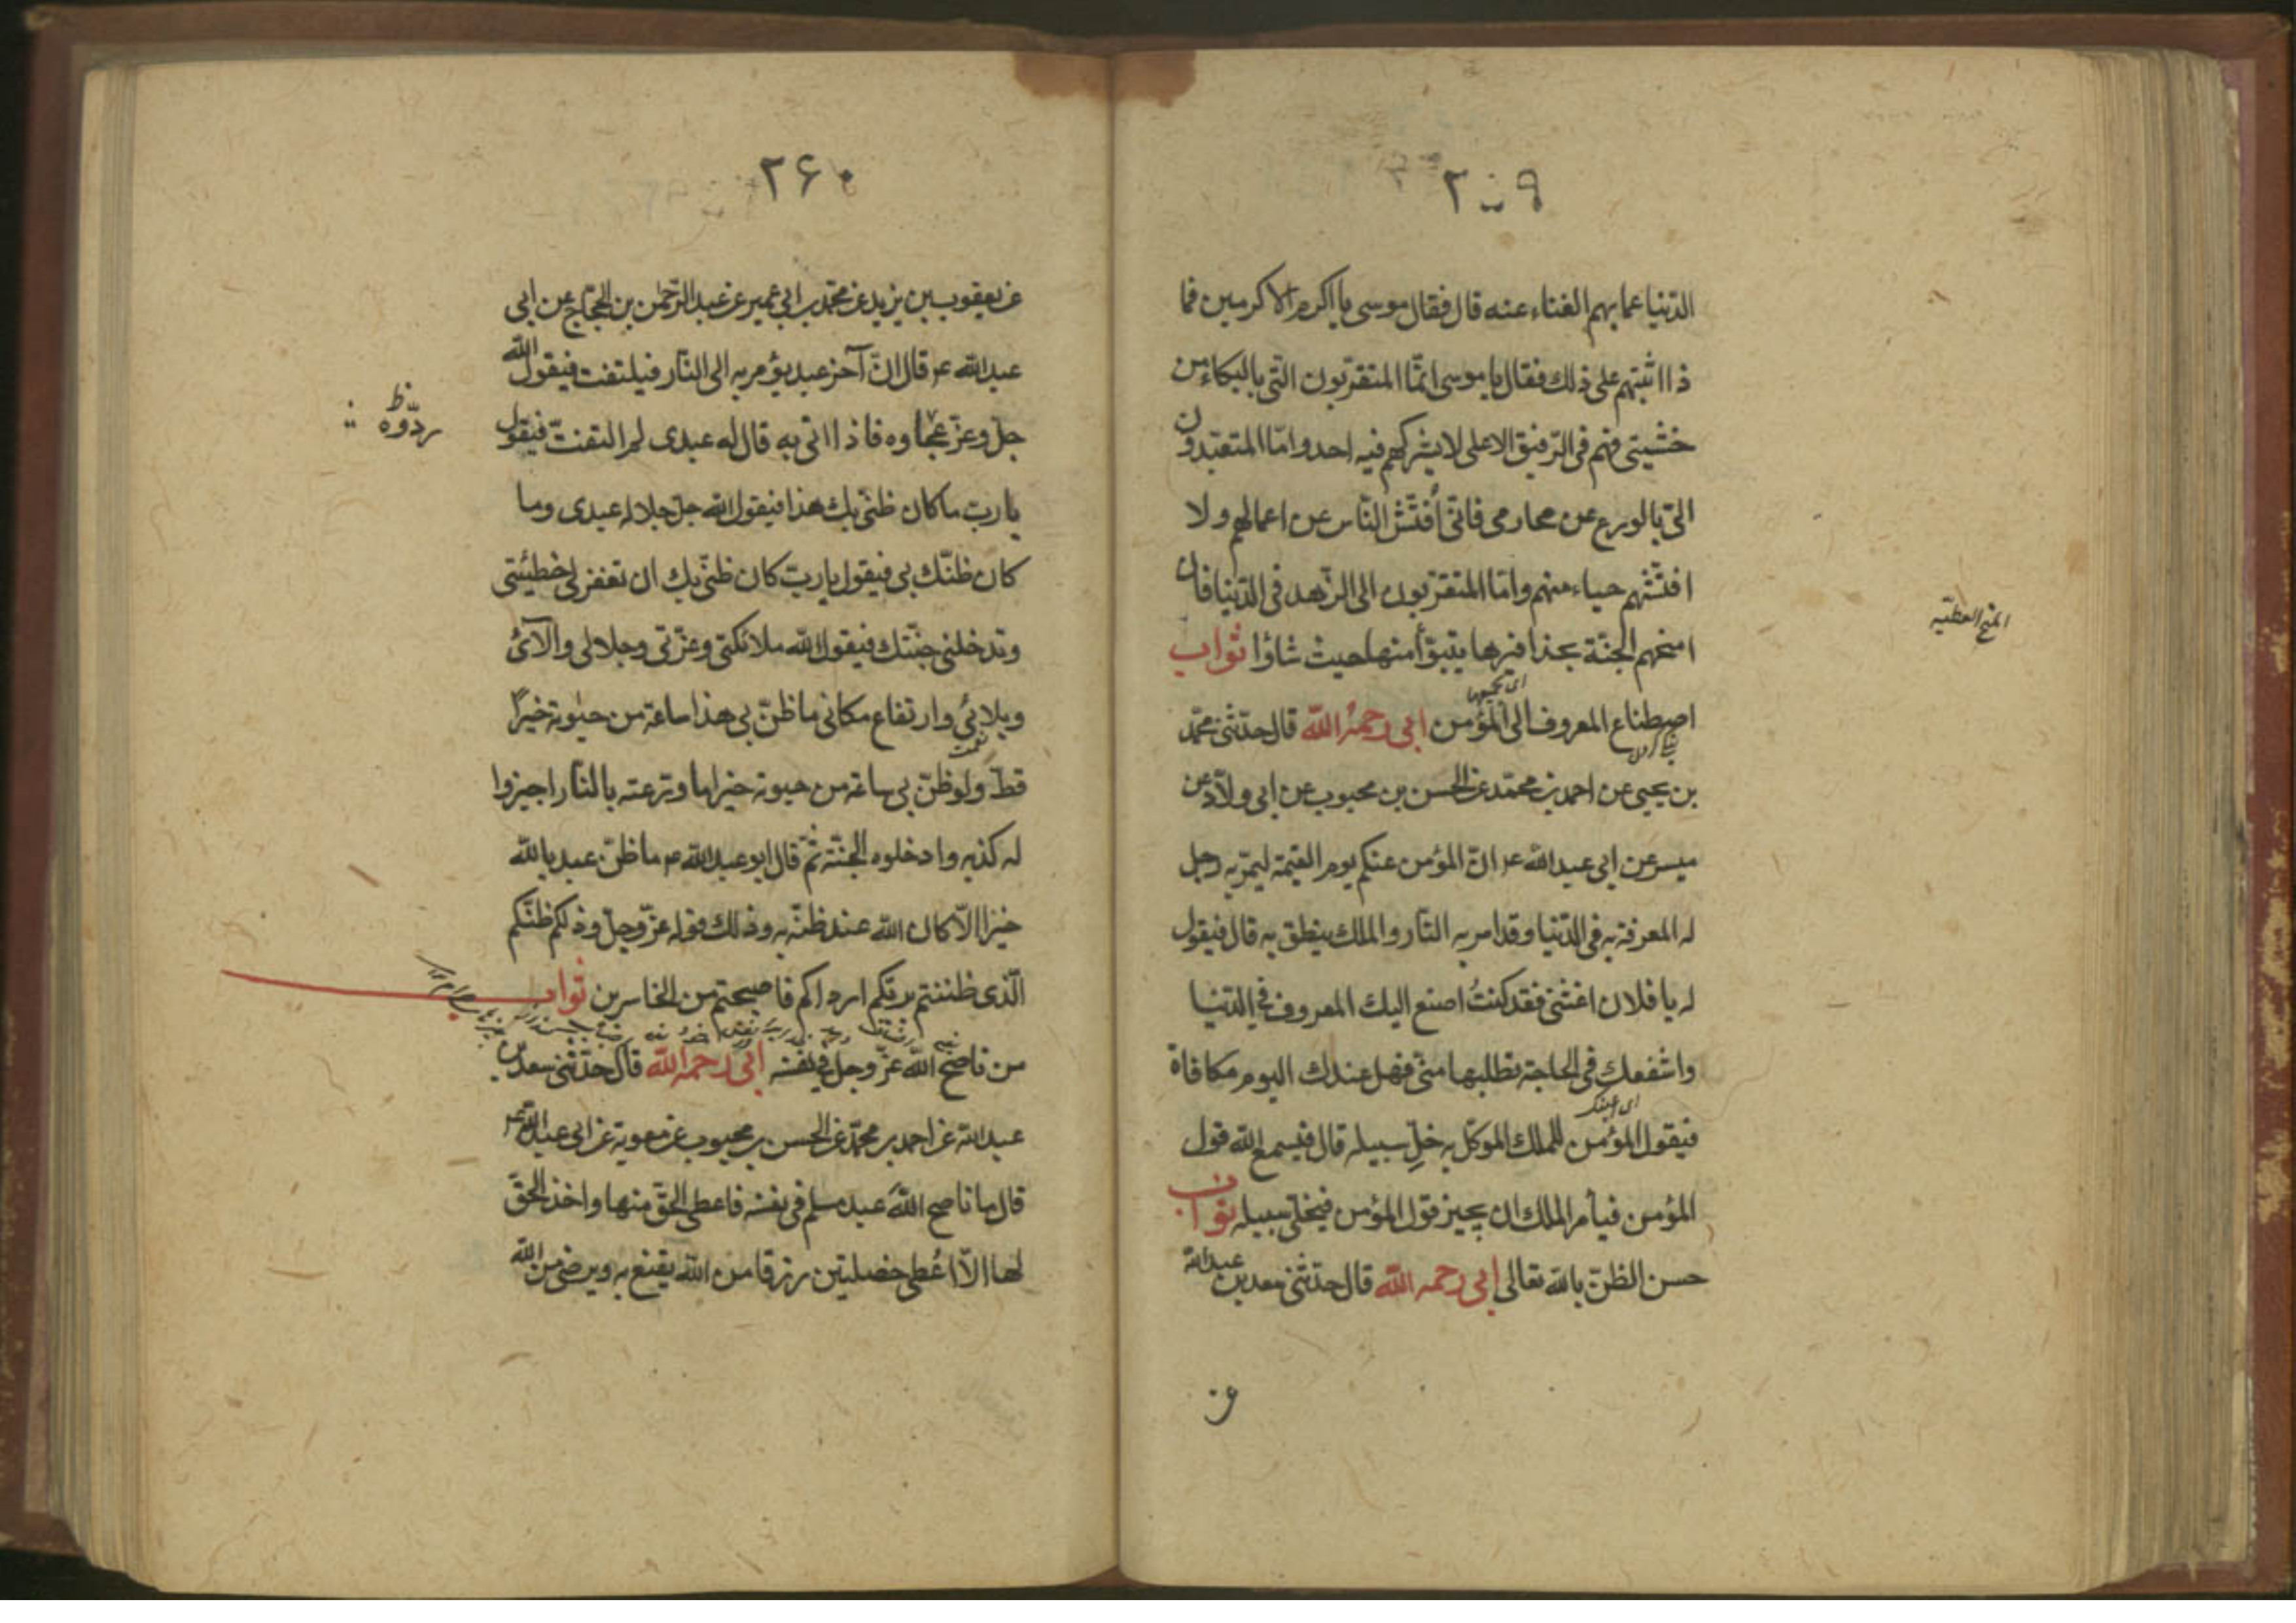 ٢٥٩
الدّنيا عما بهم الغناء عنه قال فقال موسى يا اكرم الاكرمين فما
ذا اثبتهم على ذلك فقال يا موسى امّا المتقرّبون الىّ بالبكاء من
خشيتى فهم فى الرّفيق الاعلى لا يشركهم فيه احد وامّا المتعبّدون
الىّ بالورع عن محارمى فانّى اُفتّش النّاس عن اعمالهم ولا
افتّشهم حياء منهم وامّا المتقرّبون الى الزّهد فى الدّنيا فان
امنحهم الجنّة بحذافيرها يتبوّأ منها حيث شاؤا ثواب
المنح العطيّه
اصطناع المعروف الى المؤمن ابى رحمهُ الله قال حدّثنى محمّد
بن يحيى عن احمد بن محمّد عن الحسن بن محبوب عن ابى ولّاد عن
ميسر عن ابى عبد الله ع انّ المؤمن عنكم يوم القيمة ليمرّ به رجل
له المعرفة به فى الدّنيا وقد امر به النّار والملك ينطلق به قال فيقول
له يا فلان اغثنى فقد كنتُ اصنع اليك المعروف فى الدّنيا
واشفعك فى الحاجة تطلبها منّى فهل عندك اليوم مكافاة
فيقول المؤمن للملك الموكّل به خلِّ سبيله قال فيسمع الله قول
المؤمن فيأمر الملك ان يجيز قول المؤمن فيخلّى سبيله ثواب
حسن الظنّ بالله تعالى ابى رحمه الله قال حدّثنى سعد بن عبد الله
٢۶٠
عن يعقوب بن يزيد عن محمّد بن ابى عمير عن عبد الرّحمن بن الحجّاج عن ابى
عبد الله ع قال انّ آخر عبد يؤمر به الى النّار فيلتفت فيقول الله
جلّ وعزّ عجّلوه فاذا اتى به قال له عبدى لم التفتّ فيقول
ردّوه ظ
يا ربّ ما كان ظنّى بك هذا فيقول الله جلّ جلاله عبدى وما
كان ظنّك بى فيقول يا ربّ كان ظنّى بك ان تغفر لى خطيئتى
وتدخلنى جنّتك فيقول الله ملائكتى وعزّتى وجلالى والآئى
وبلائى وارتفاع مكانى ما ظنّ بى هذا ساعة من حيوته خيرًا
قطّ ولو ظنّ بى ساعة من حيوته خيرا ما روّعته بالنّار اجيزوا
له كذبه وادخلوه الجنّة ثمّ قال ابو عبد الله ع ما ظنّ عبد بالله
خيرا الّا كان الله عند ظنّه به وذلك قوله عزّ وجلّ وذلكم ظنّكم
الّذى ظننتم بربّكم ارداكم فاصبحتم من الخاسرين ثواب
من ناصح الله عزّ وجل فى نفسه ابى رحمه الله قال حدّثنى سعد بن
عبد الله عن احمد بن محمّد عن الحسن بن محبوب عن معوية عن ابى عبد الله ع
قال ما ناصح الله عبد مسلم فى نفسه فاعطى الحقّ منها واخذ الحقّ
لها الّا اُعطى خصلتين رزقا من الله يقنع به ويرضى من الله